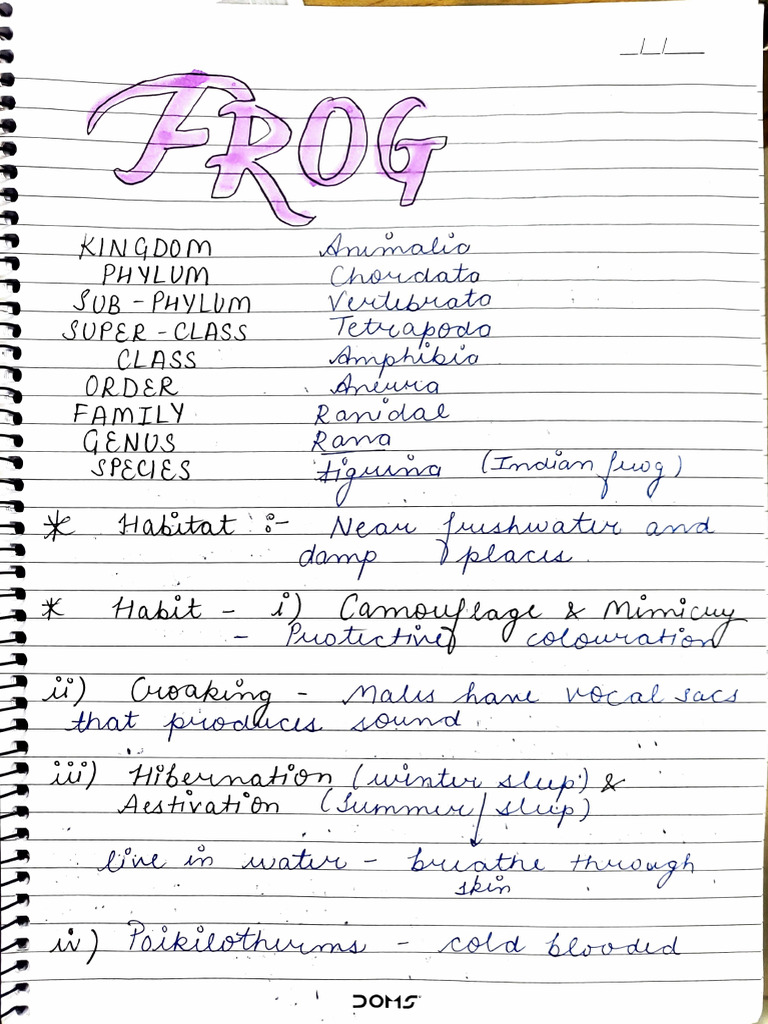 FROG
KINGDOM Animalia
PHYLUM Chordata
SUB-PHYLUM Vertebrata
SUPER-CLASS Tetrapoda
CLASS Amphibia
ORDER Aneura
FAMILY Ranidae
GENUS Rana
SPECIES tigrina (Indian frog)
* Habitat :- Near freshwater and
damp places.
* Habit - i) Camouflage & Mimicry
- Protective colouration
ii) Croaking - Males have vocal sacs
that produces sound.
iii) Hibernation (winter sleep) &
Aestivation (Summer sleep)
live in water - breathe through
skin
iv) Poikilotherms - cold blooded
DOMS